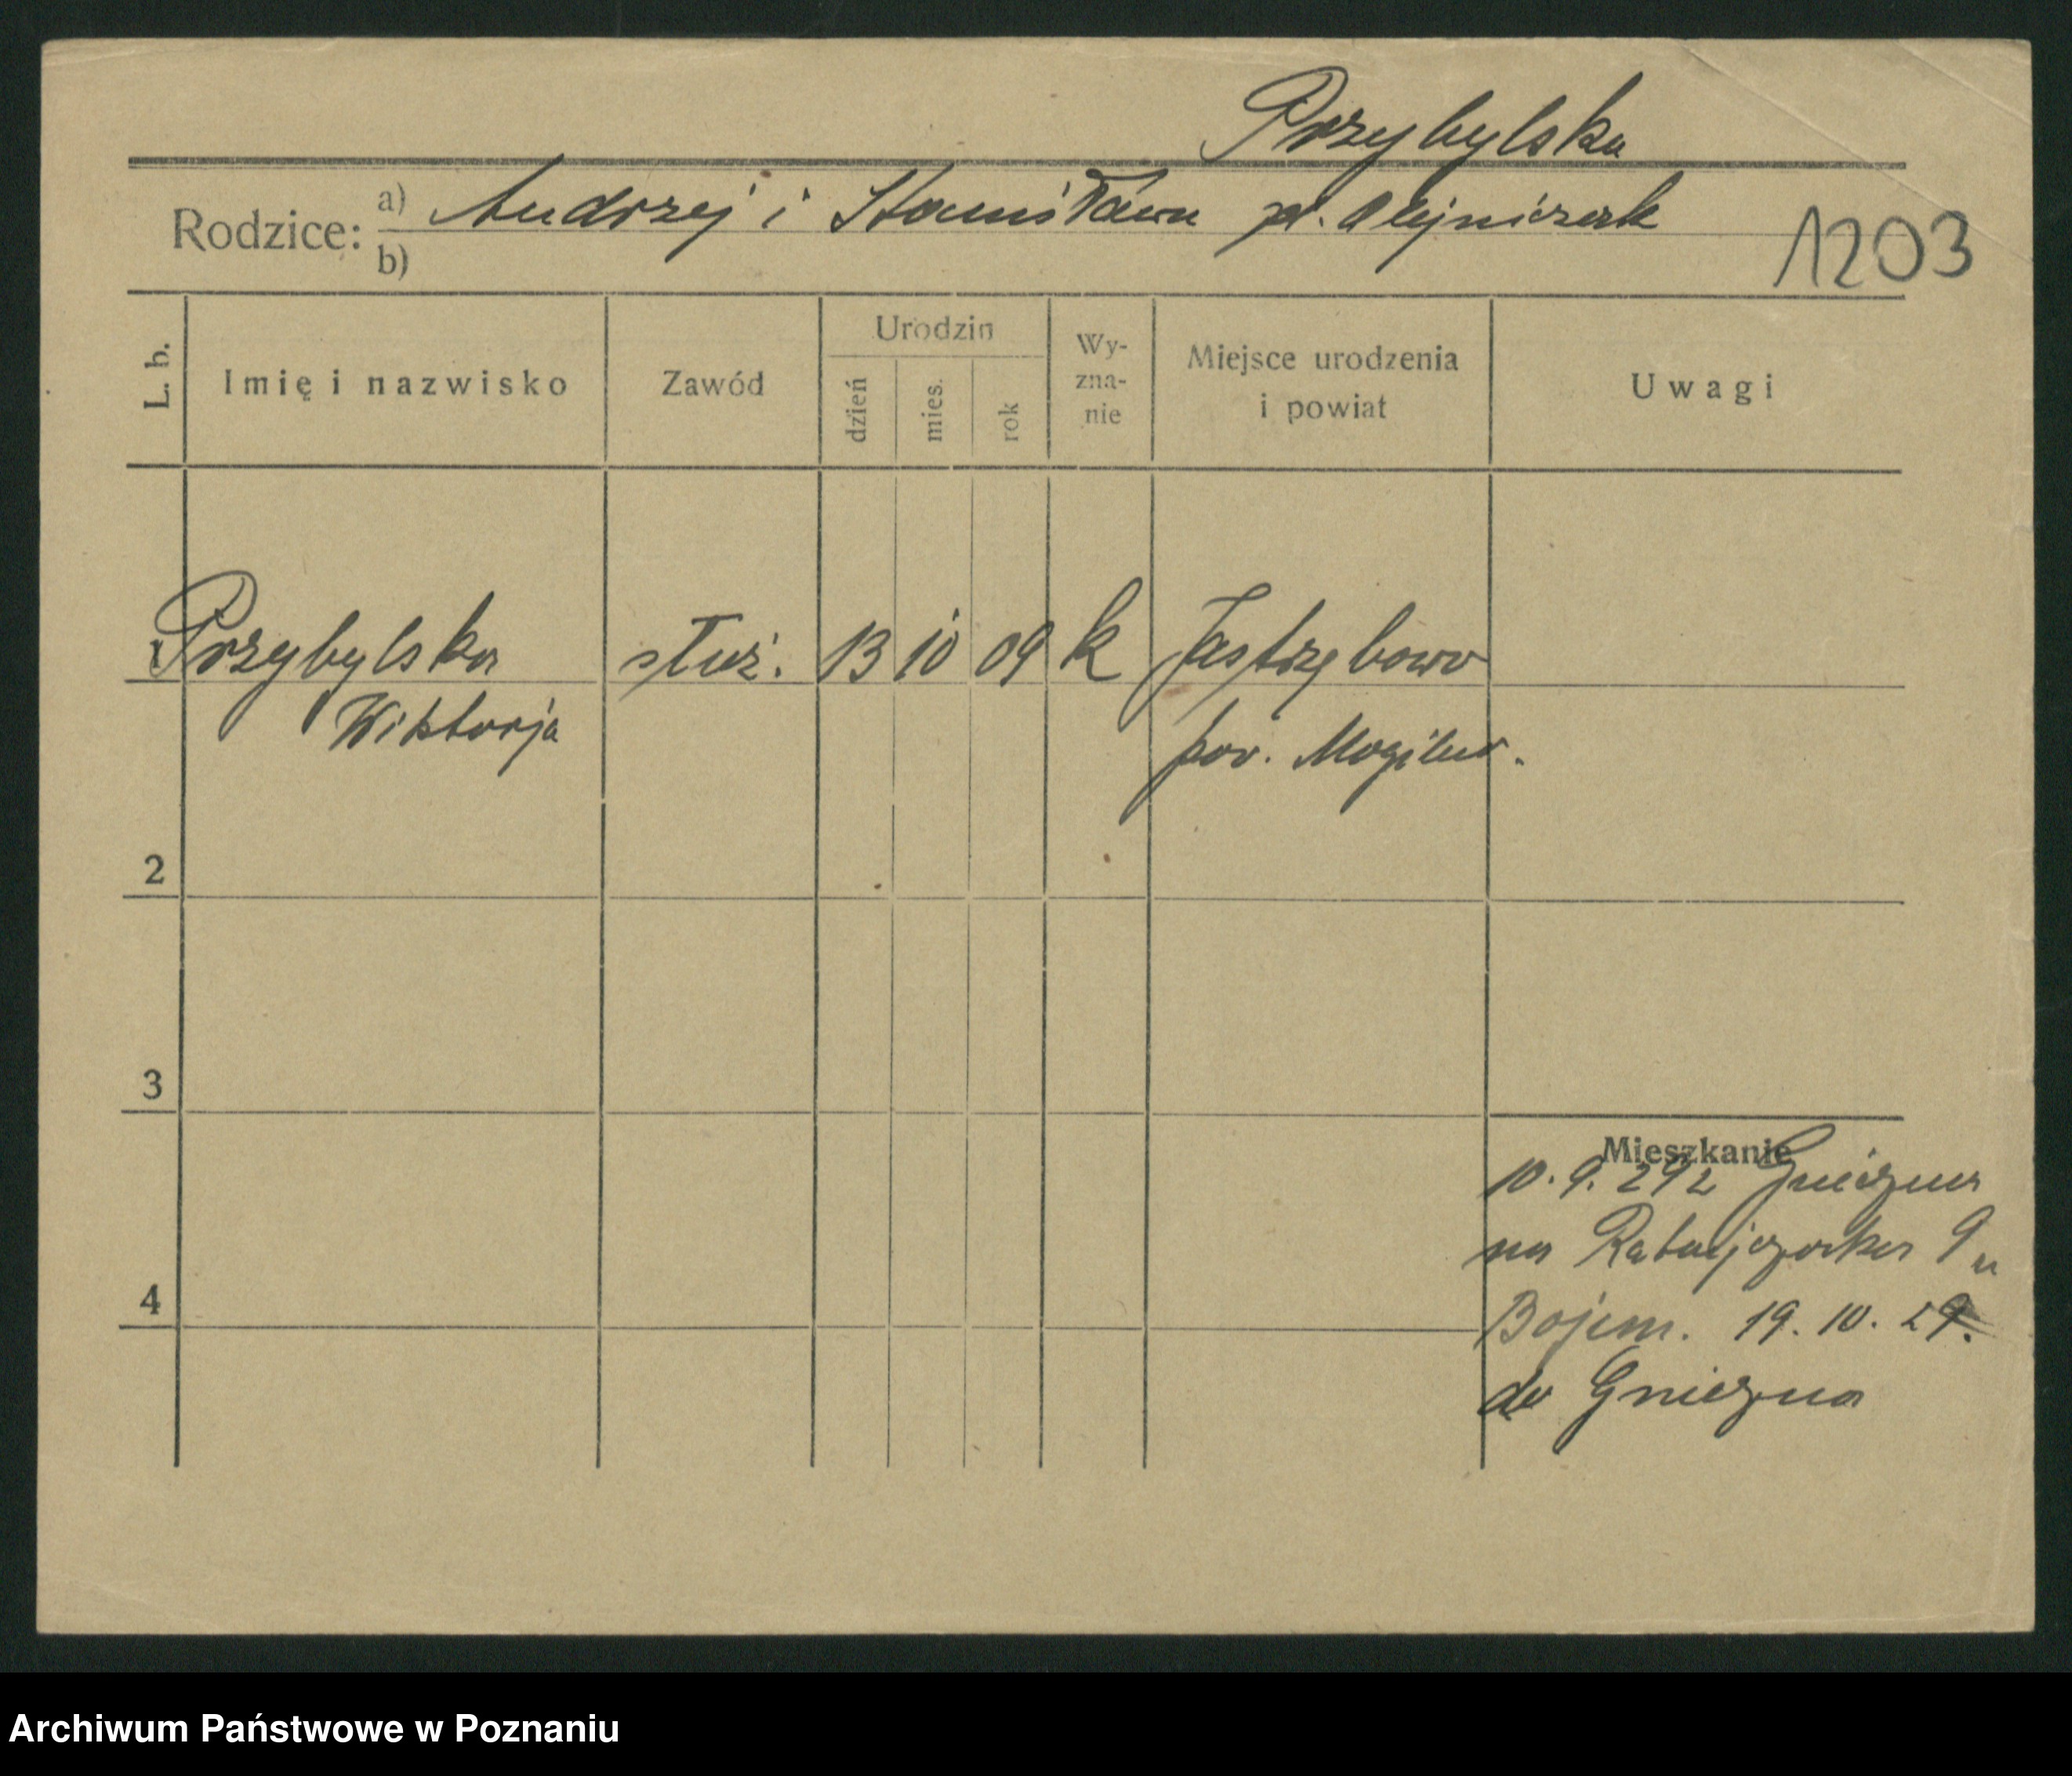 Przybylska
Rodzice: a) Andrzej i Stanisława zd. Olejniczak
b)
1203
L. b.
Imię i nazwisko
Zawód
Urodzin
dzień
mies.
rok
Wy-
zna-
nie
Miejsce urodzenia
i powiat
Uwagi
1 Przybylska służ. 13 10 09 k Jastrzębowo
Wiktorja pow. Mogilno.
2
3
Mieszkanie
10. 9. 29 z Gniezna
na Ratajczaka 9 u
19. 10. 29.
4
do Gniezna
Archiwum Państwowe w Poznaniu